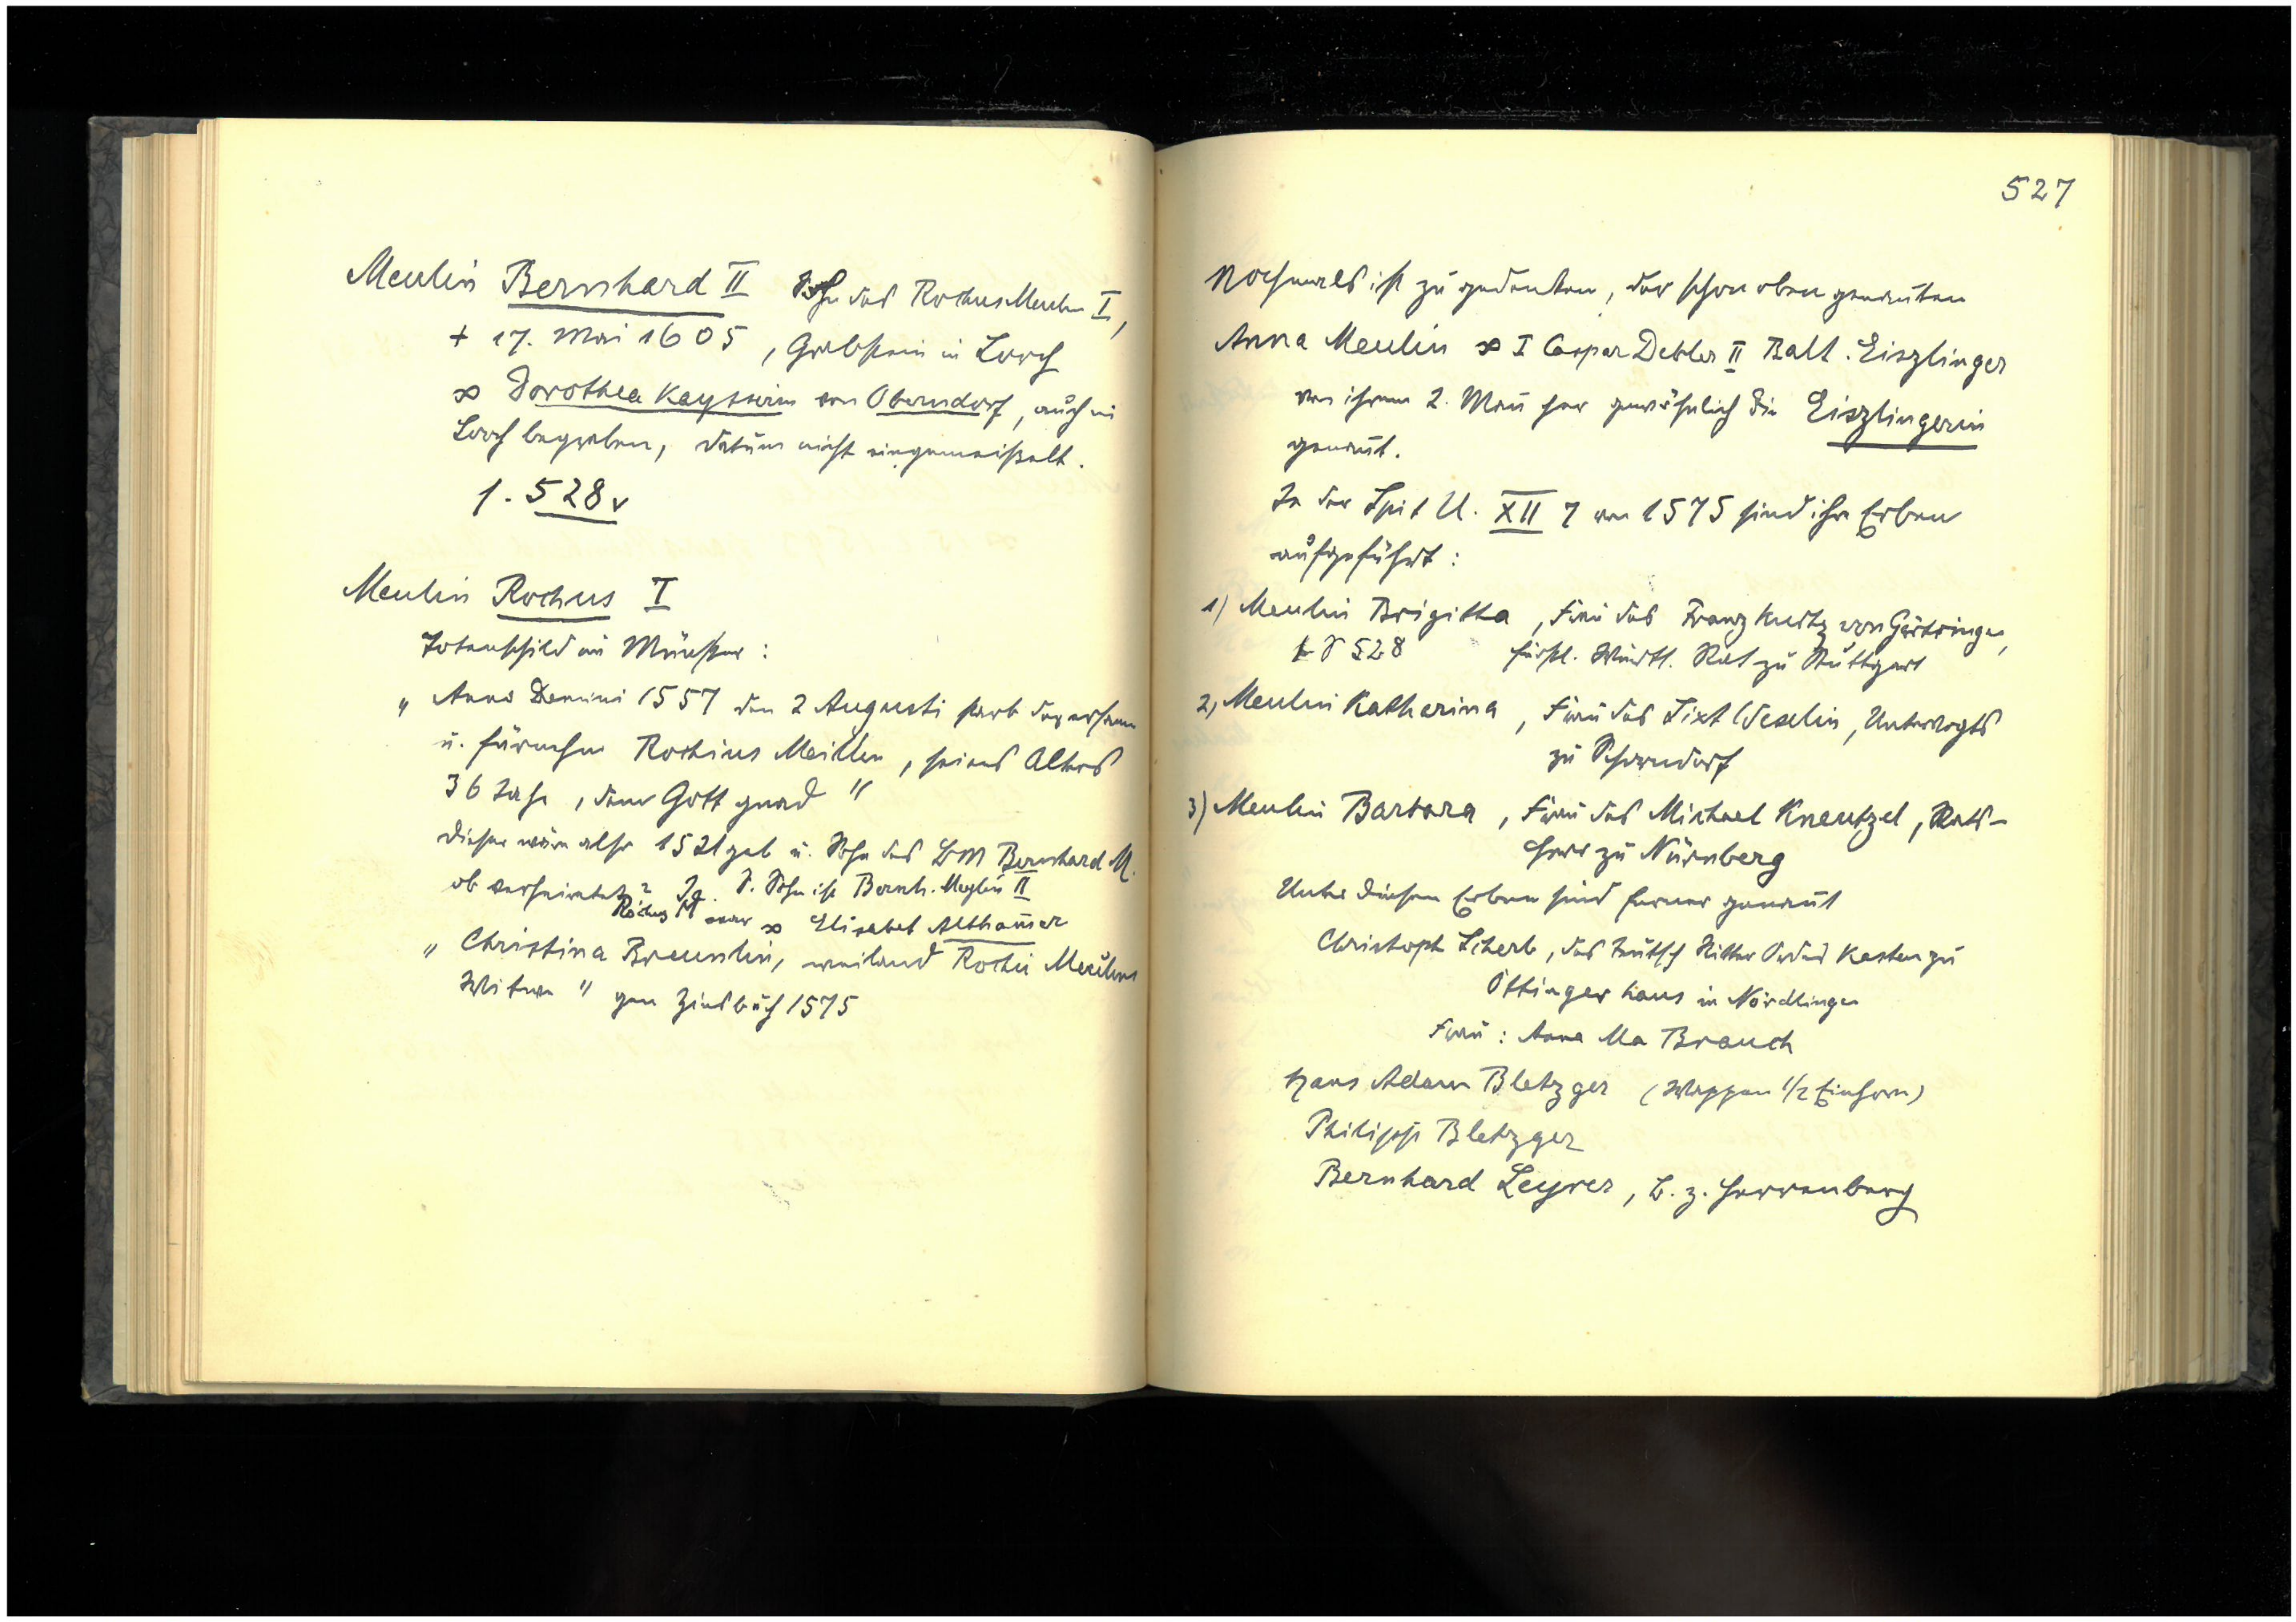 Meulin Bernhard II Sohn des Rochus Meulin I,
+ 17. Mai 1605, Grabstein in Lorch
∞ Dorothea Kaysserin von Oberndorf, auch in
Lorch begraben, Datum nicht eingemeißelt.
s. 528v
Meulin Rochus I
Totenschild im Münster:
"Anno Domini 1557 den 2 Augusti starb der ersam
u. fürnehm Rochius Meillen, seines Alters
36 Jahr, dem Gott gnad"
dieser wäre also 1521 geb u. Sohn des BM Bernhard M.
ob verheiratet? Ja. S. Sohn ist Bernh. Meylin II
Rochus M war ∞ Elisabet Althamer
"Christina Breunlin, weiland Rochii Meulins
Witwe" gen Zinsbuch 1575
527
Nochmals ist zu gedenken, der schon oben genanten
Anna Meulin ∞ I Caspar Debler II Balt. Eiszlinger
von ihrem 2. Man her gewöhnlich die Eiszlingerin
genant.
In der Spit U. XII 7 von 1575 sind ihre Erben
aufgeführt:
1) Meulin Brigitta, Frau des Franz Kurtz von Gärtringen,
S 528 fürstl. Württ. Rat zu Stuttgart
2, Meulin Katharina, Frau des Sixt Weselin, Untervogts
zu Schorndorf
3) Meulin Barbara, Frau des Michael Kneutzel, Rats-
herr zu Nürnberg
Unter diesen Erben sind ferner genant
Christoph Scherb, des teutsch Ritter Ordens Kasten zu
Öttinger haus in Nördlingen
Frau: Anna Ma Brauch
Hans Adam Bletzger (Wappen 1/2 Einhorn)
Philipp Bletzger
Bernhard Leyrer, B. z. Herrenberg